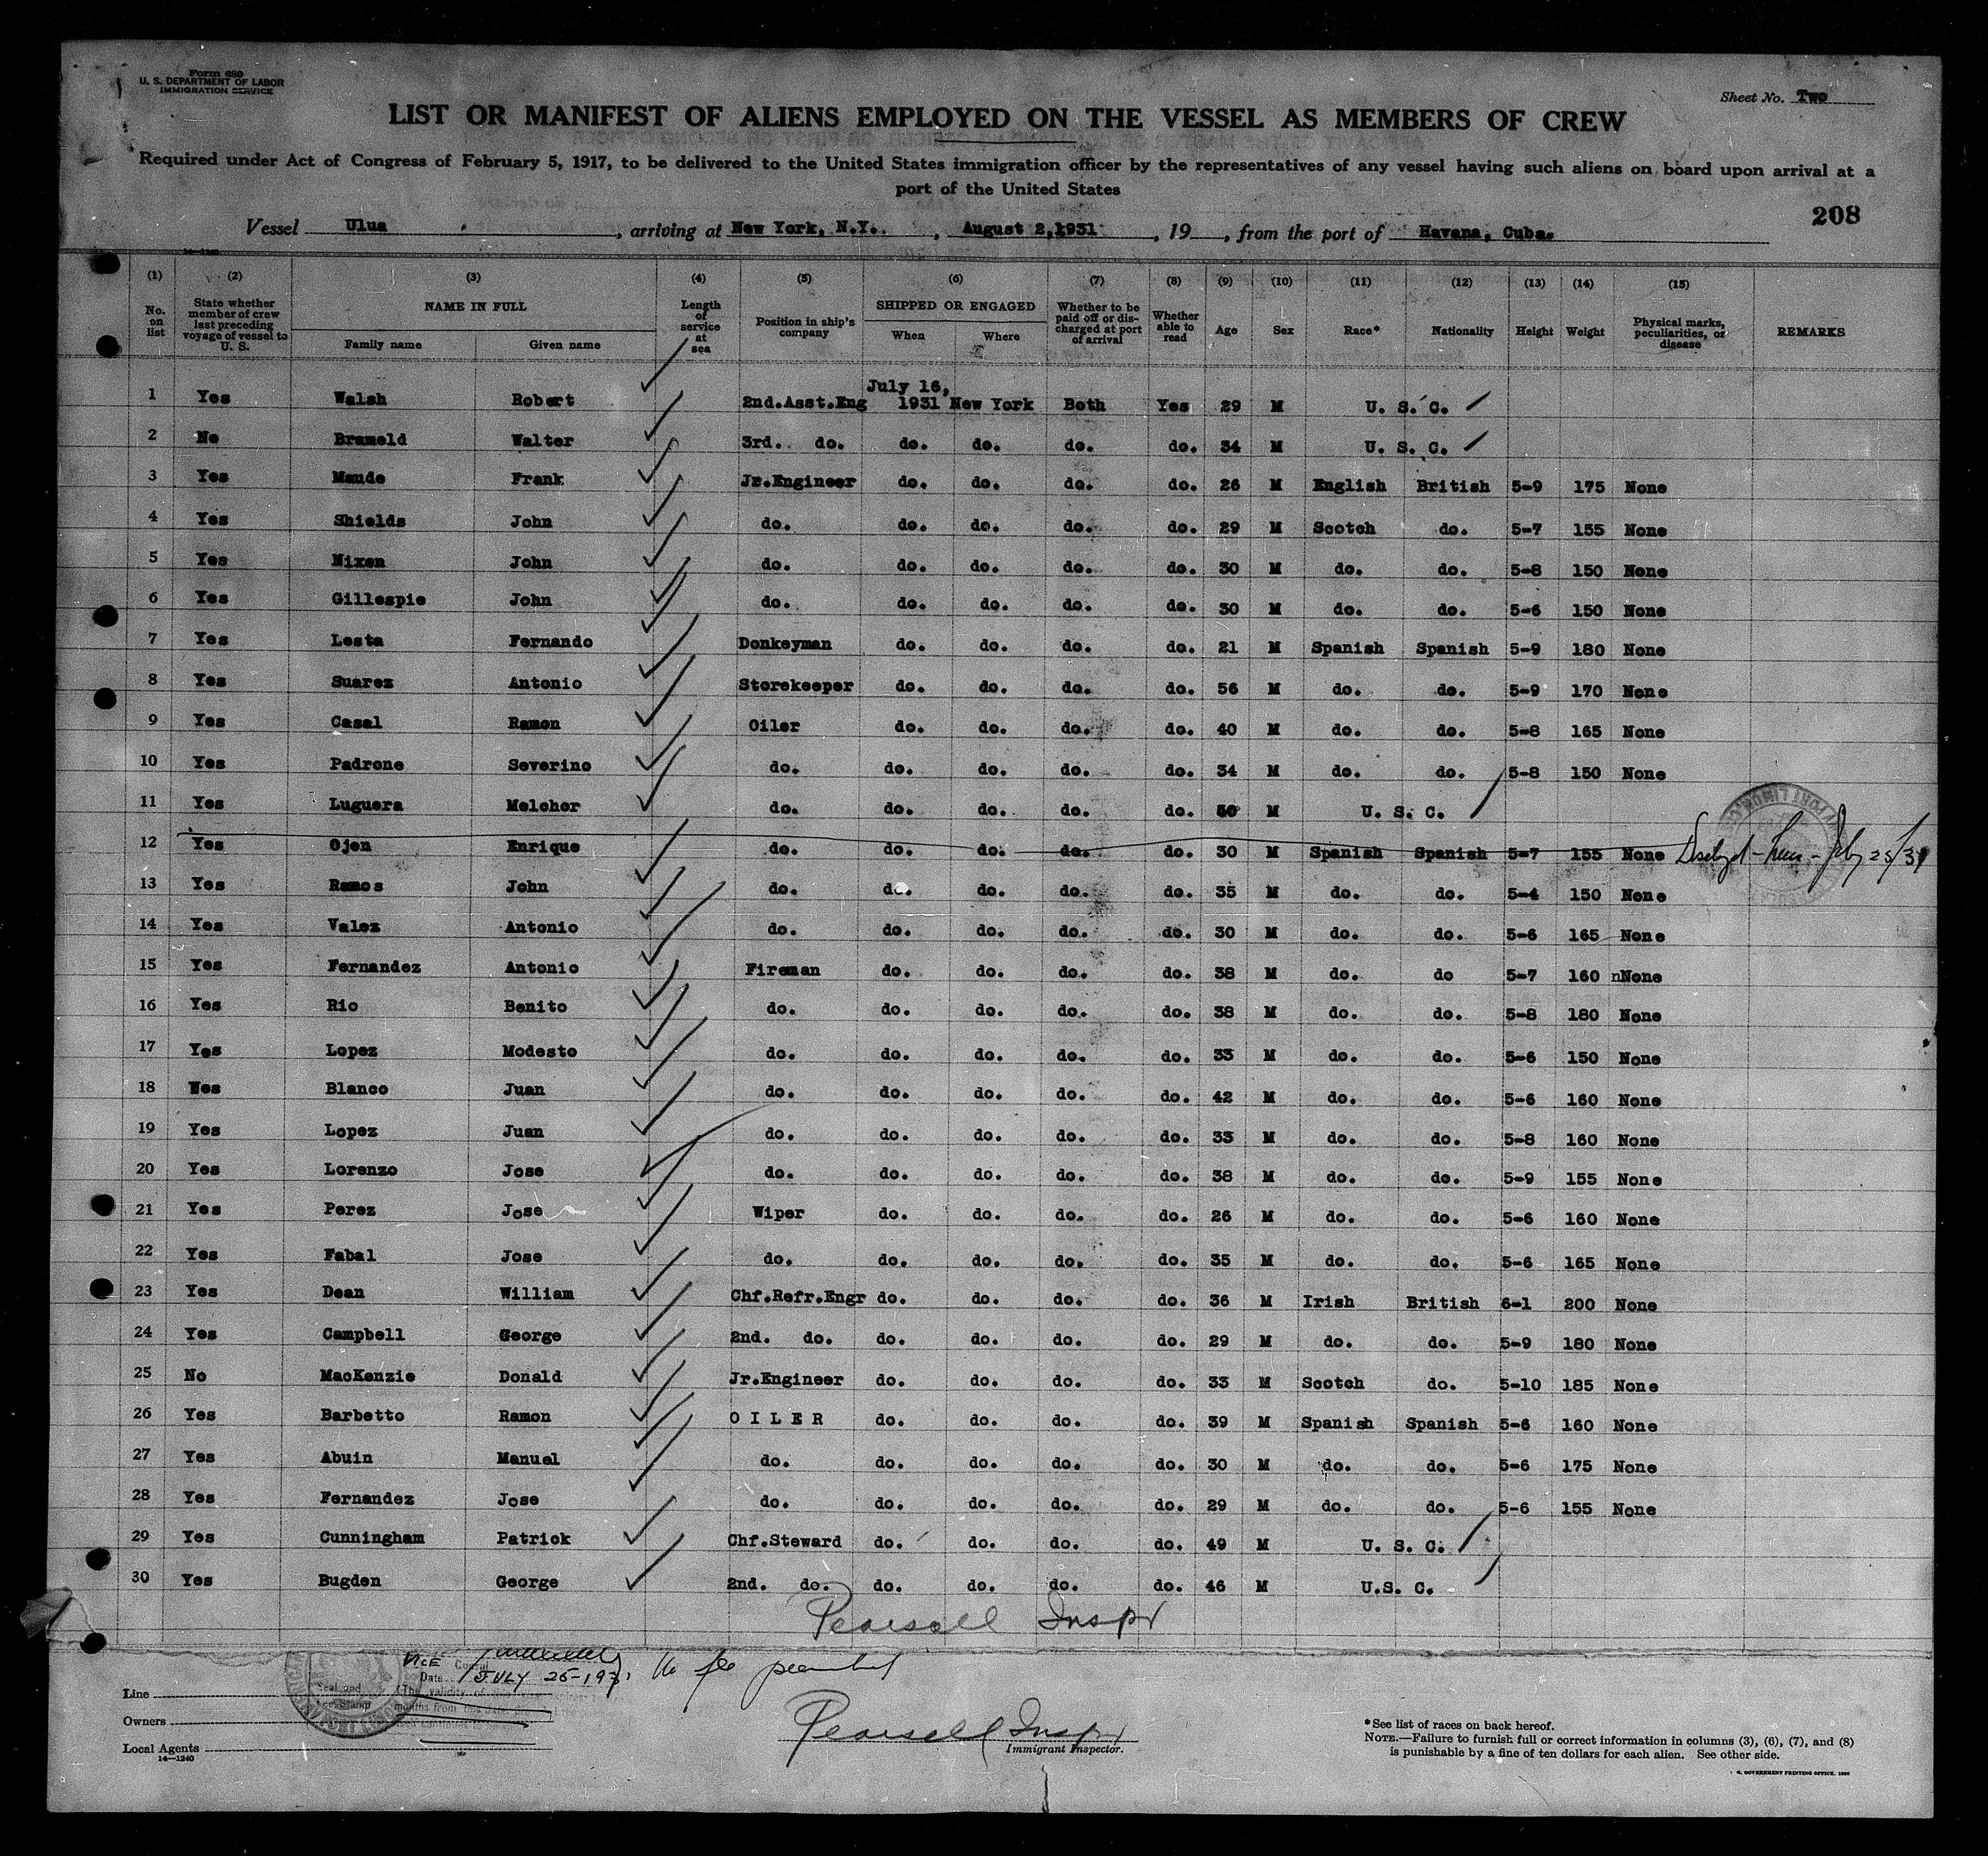 Form 680
U. S. DEPARTMENT OF LABOR
IMMIGRATION SERVICE
Sheet No. Two
LIST OR MANIFEST OF ALIENS EMPLOYED ON THE VESSEL AS MEMBERS OF CREW
Required under Act of Congress of February 5, 1917, to be delivered to the United States immigration officer by the representatives of any vessel having such aliens on board upon arrival at a
port of the United States
208
Vessel Ulua, arriving at New York, N.Y., August 2,1931, 19, from the port of Havana, Cuba.
(1) (2) (3) (4) (5) (6) (7) (8) (9) (10) (11) (12) (13) (14) (15)
No. on list State whether member of crew last preceding voyage of vessel to U. S. NAME IN FULL Family name Given name Length of service at sea Position in ship's company SHIPPED OR ENGAGED When Where Whether to be paid off or discharged at port of arrival Whether able to read Age Sex Race* Nationality Height Weight Physical marks, peculiarities, or disease REMARKS
1 Yes Walsh Robert 2nd.Asst.Eng July 16, 1931 New York Both Yes 29 M U. S. C.
2 No Brameld Walter 3rd. do. do. do. do. do. 34 M U. S. C.
3 Yes Maude Frank Jr.Engineer do. do. do. do. 26 M English British 5-9 175 None
4 Yes Shields John do. do. do. do. do. 29 M Scotch do. 5-7 155 None
5 Yes Nixen John do. do. do. do. do. 30 M do. do. 5-8 150 None
6 Yes Gillespie John do. do. do. do. do. 30 M do. do. 5-6 150 None
7 Yes Lesta Fernando Donkeyman do. do. do. do. 21 M Spanish Spanish 5-9 180 None
8 Yes Suarez Antonio Storekeeper do. do. do. do. 56 M do. do. 5-9 170 None
9 Yes Casal Ramon Oiler do. do. do. do. 40 M do. do. 5-8 165 None
10 Yes Padrone Severino do. do. do. do. do. 34 M do. do. 5-8 150 None
11 Yes Luguera Melchor do. do. do. do. do. 50 M U. S. C.
12 Yes Ojen Enrique do. do. do. do. do. 30 M Spanish Spanish 5-7 155 None
13 Yes Ramos John do. do. do. do. do. 35 M do. do. 5-4 150 None
14 Yes Valez Antonio do. do. do. do. do. 30 M do. do. 5-6 165 None
15 Yes Fernandez Antonio Fireman do. do. do. do. 38 M do. do 5-7 160 nNone
16 Yes Rio Benito do. do. do. do. do. 38 M do. do. 5-8 180 None
17 Yes Lopez Modesto do. do. do. do. do. 33 M do. do. 5-6 150 None
18 Wes Blanco Juan do. do. do. do. do. 42 M do. do. 5-6 160 None
19 Yes Lopez Juan do. do. do. do. do. 33 M do. do. 5-8 160 None
20 Yes Lorenzo Jose do. do. do. do. do. 38 M do. do. 5-9 155 None
21 Yes Perez Jose Wiper do. do. do. do. 26 M do. do. 5-6 160 None
22 Yes Fabal Jose do. do. do. do. do. 35 M do. do. 5-6 165 None
23 Yes Dean William Chf.Refr.Engr do. do. do. do. 36 M Irish British 6-1 200 None
24 Yes Campbell George 2nd. do. do. do. do. do. 29 M do. do. 5-9 180 None
25 No MacKenzie Donald Jr.Engineer do. do. do. do. 33 M Scotch do. 5-10 185 None
26 Yes Barbetto Ramon O I L E R do. do. do. do. 39 M Spanish Spanish 5-6 160 None
27 Yes Abuin Manuel do. do. do. do. do. 30 M do. do. 5-6 175 None
28 Yes Fernandez Jose do. do. do. do. do. 29 M do. do. 5-6 155 None
29 Yes Cunningham Patrick Chf.Steward do. do. do. do. 49 M U. S. C.
30 Yes Bugden George 2nd. do. do. do. do. do. 46 M U.S. C.
Pearsall Inspr
Vice Consul
Date JULY 25-1931 No fee prescribed
Line
Seal and
Fee Stamp
(The validity of
months from this date
Owners
Local Agents
14—1240
Pearsall Inspr
Immigrant Inspector.
*See list of races on back hereof.
NOTE.—Failure to furnish full or correct information in columns (3), (6), (7), and (8)
is punishable by a fine of ten dollars for each alien. See other side.